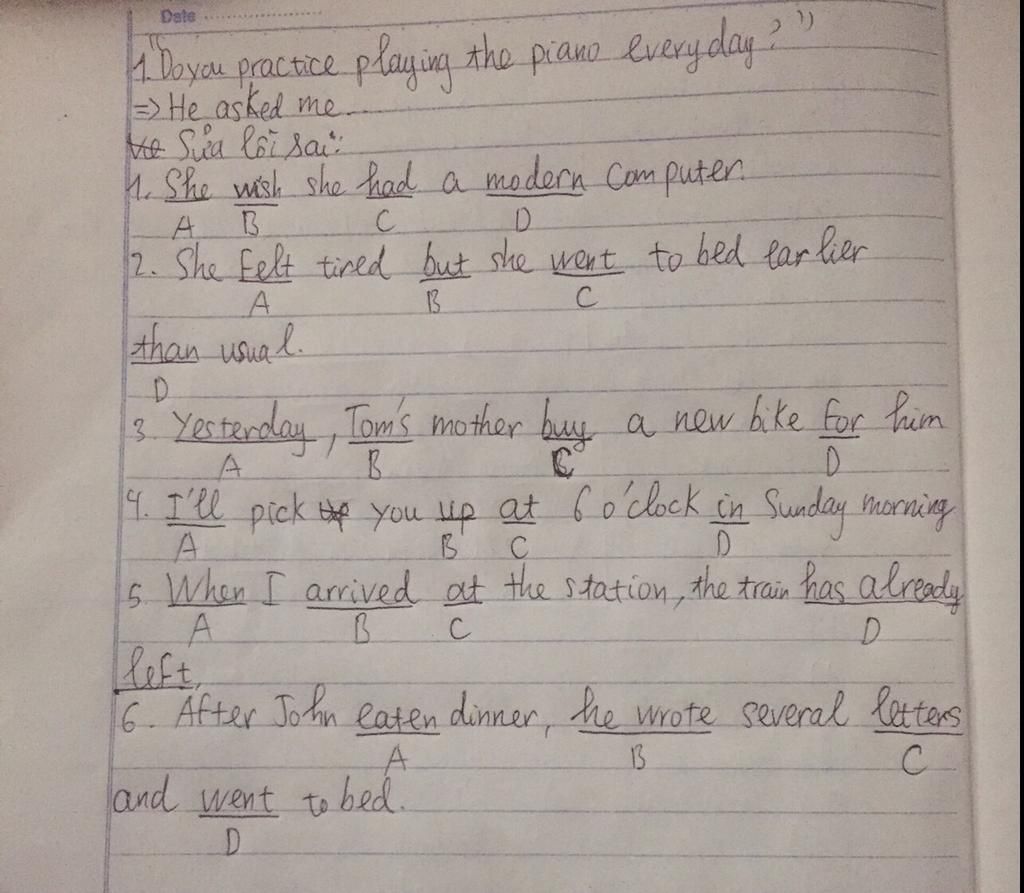 Date
1. "Do you practice playing the piano everyday?"
=> He asked me
Sửa lỗi sai:
1. She wish she had a modern computer.
A B C D
2. She felt tired but she went to bed earlier
A B C
than usual.
D
3. Yesterday, Tom's mother buy a new bike for him
A B C D
4. I'll pick you up at 6 o'clock in Sunday morning
A B C D
5. When I arrived at the station, the train has already
A B C D
left,
6. After John eaten dinner, he wrote several letters
A B C
and went to bed.
D